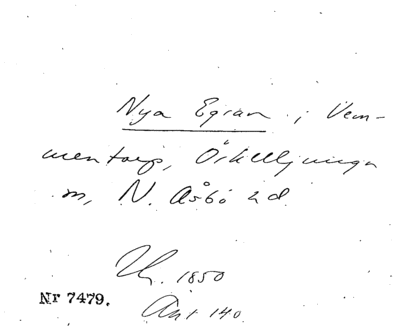 Nya Egran i Vem-
mentorp, Örkelljunga
sn, N. Åsbo hd.
Th. 1850
Nr 7479. Ant 140